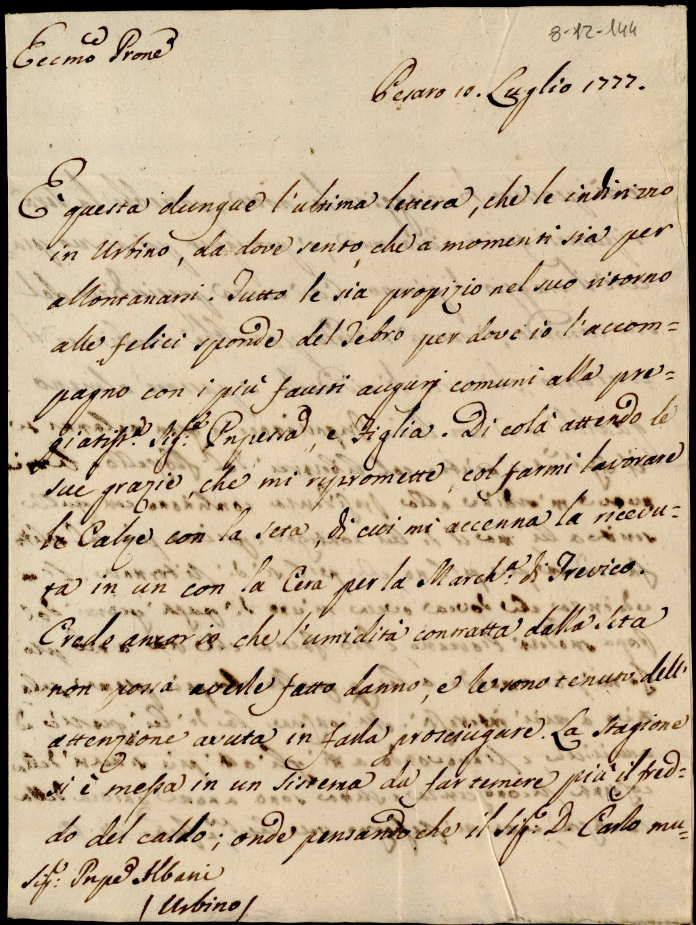 8-12-144
Eccmo Prone
Pesaro 10. Luglio 1777.
È questa dunque l'ultima lettera, che le indirizzo
in Urbino, da dove sento, che a momenti sia per
allontanarsi. Tutto le sia propizio nel suo ritorno
alle felici sponde del Tebro per dove io l'accom=
pagno con i più fausti augurj comuni alla pre=
giatissa. Sigra. Pnpessa, e Figlia. Di colà attendo le
sue grazie, che mi ripromette, col farmi lavorare
le Calze con la seta, di cui mi accenna la ricevu=
ta in un con la Cera per la Marcha. di Trevico.
Credo ancor io che l'umidità contratta dalla seta
non possa averle fatto danno, e le sono tenuto dell'
attenzione avuta in farla prosciugare. La stagione
si è messa in un sistema da far temere più il fred=
do del caldo; onde pensando che il Sigr. D. Carlo mu=
Sigr. Pnpe Albani
(Urbino)